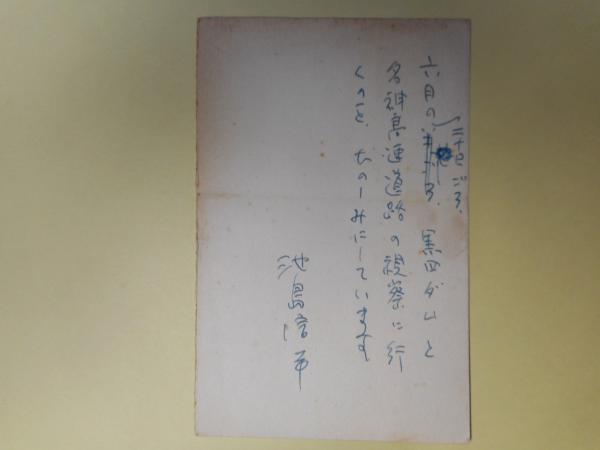 六月の二十日ごろ、黒四ダムと
名神高速道路の視察に行
くのを、たのしみにしています
池島信平